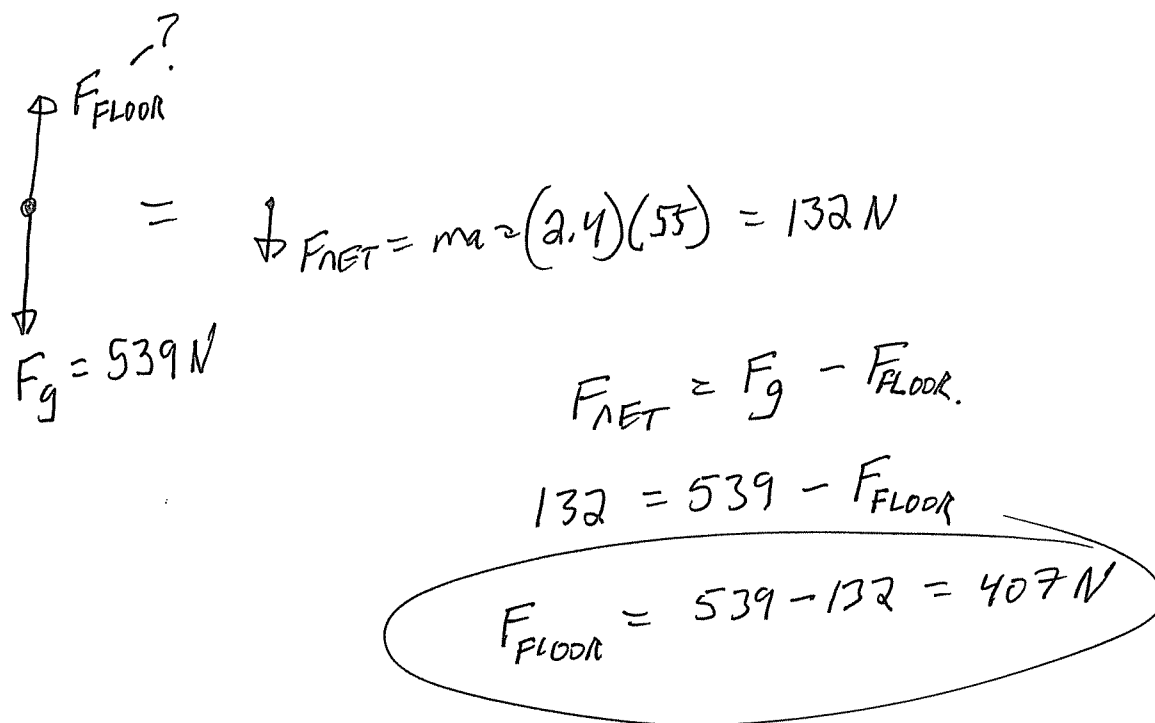 ?
F_FLOOR
=
F_NET = ma = (2.4)(55) = 132 N
F_g = 539 N
F_NET = F_g - F_FLOOR.
132 = 539 - F_FLOOR
F_FLOOR = 539 - 132 = 407 N